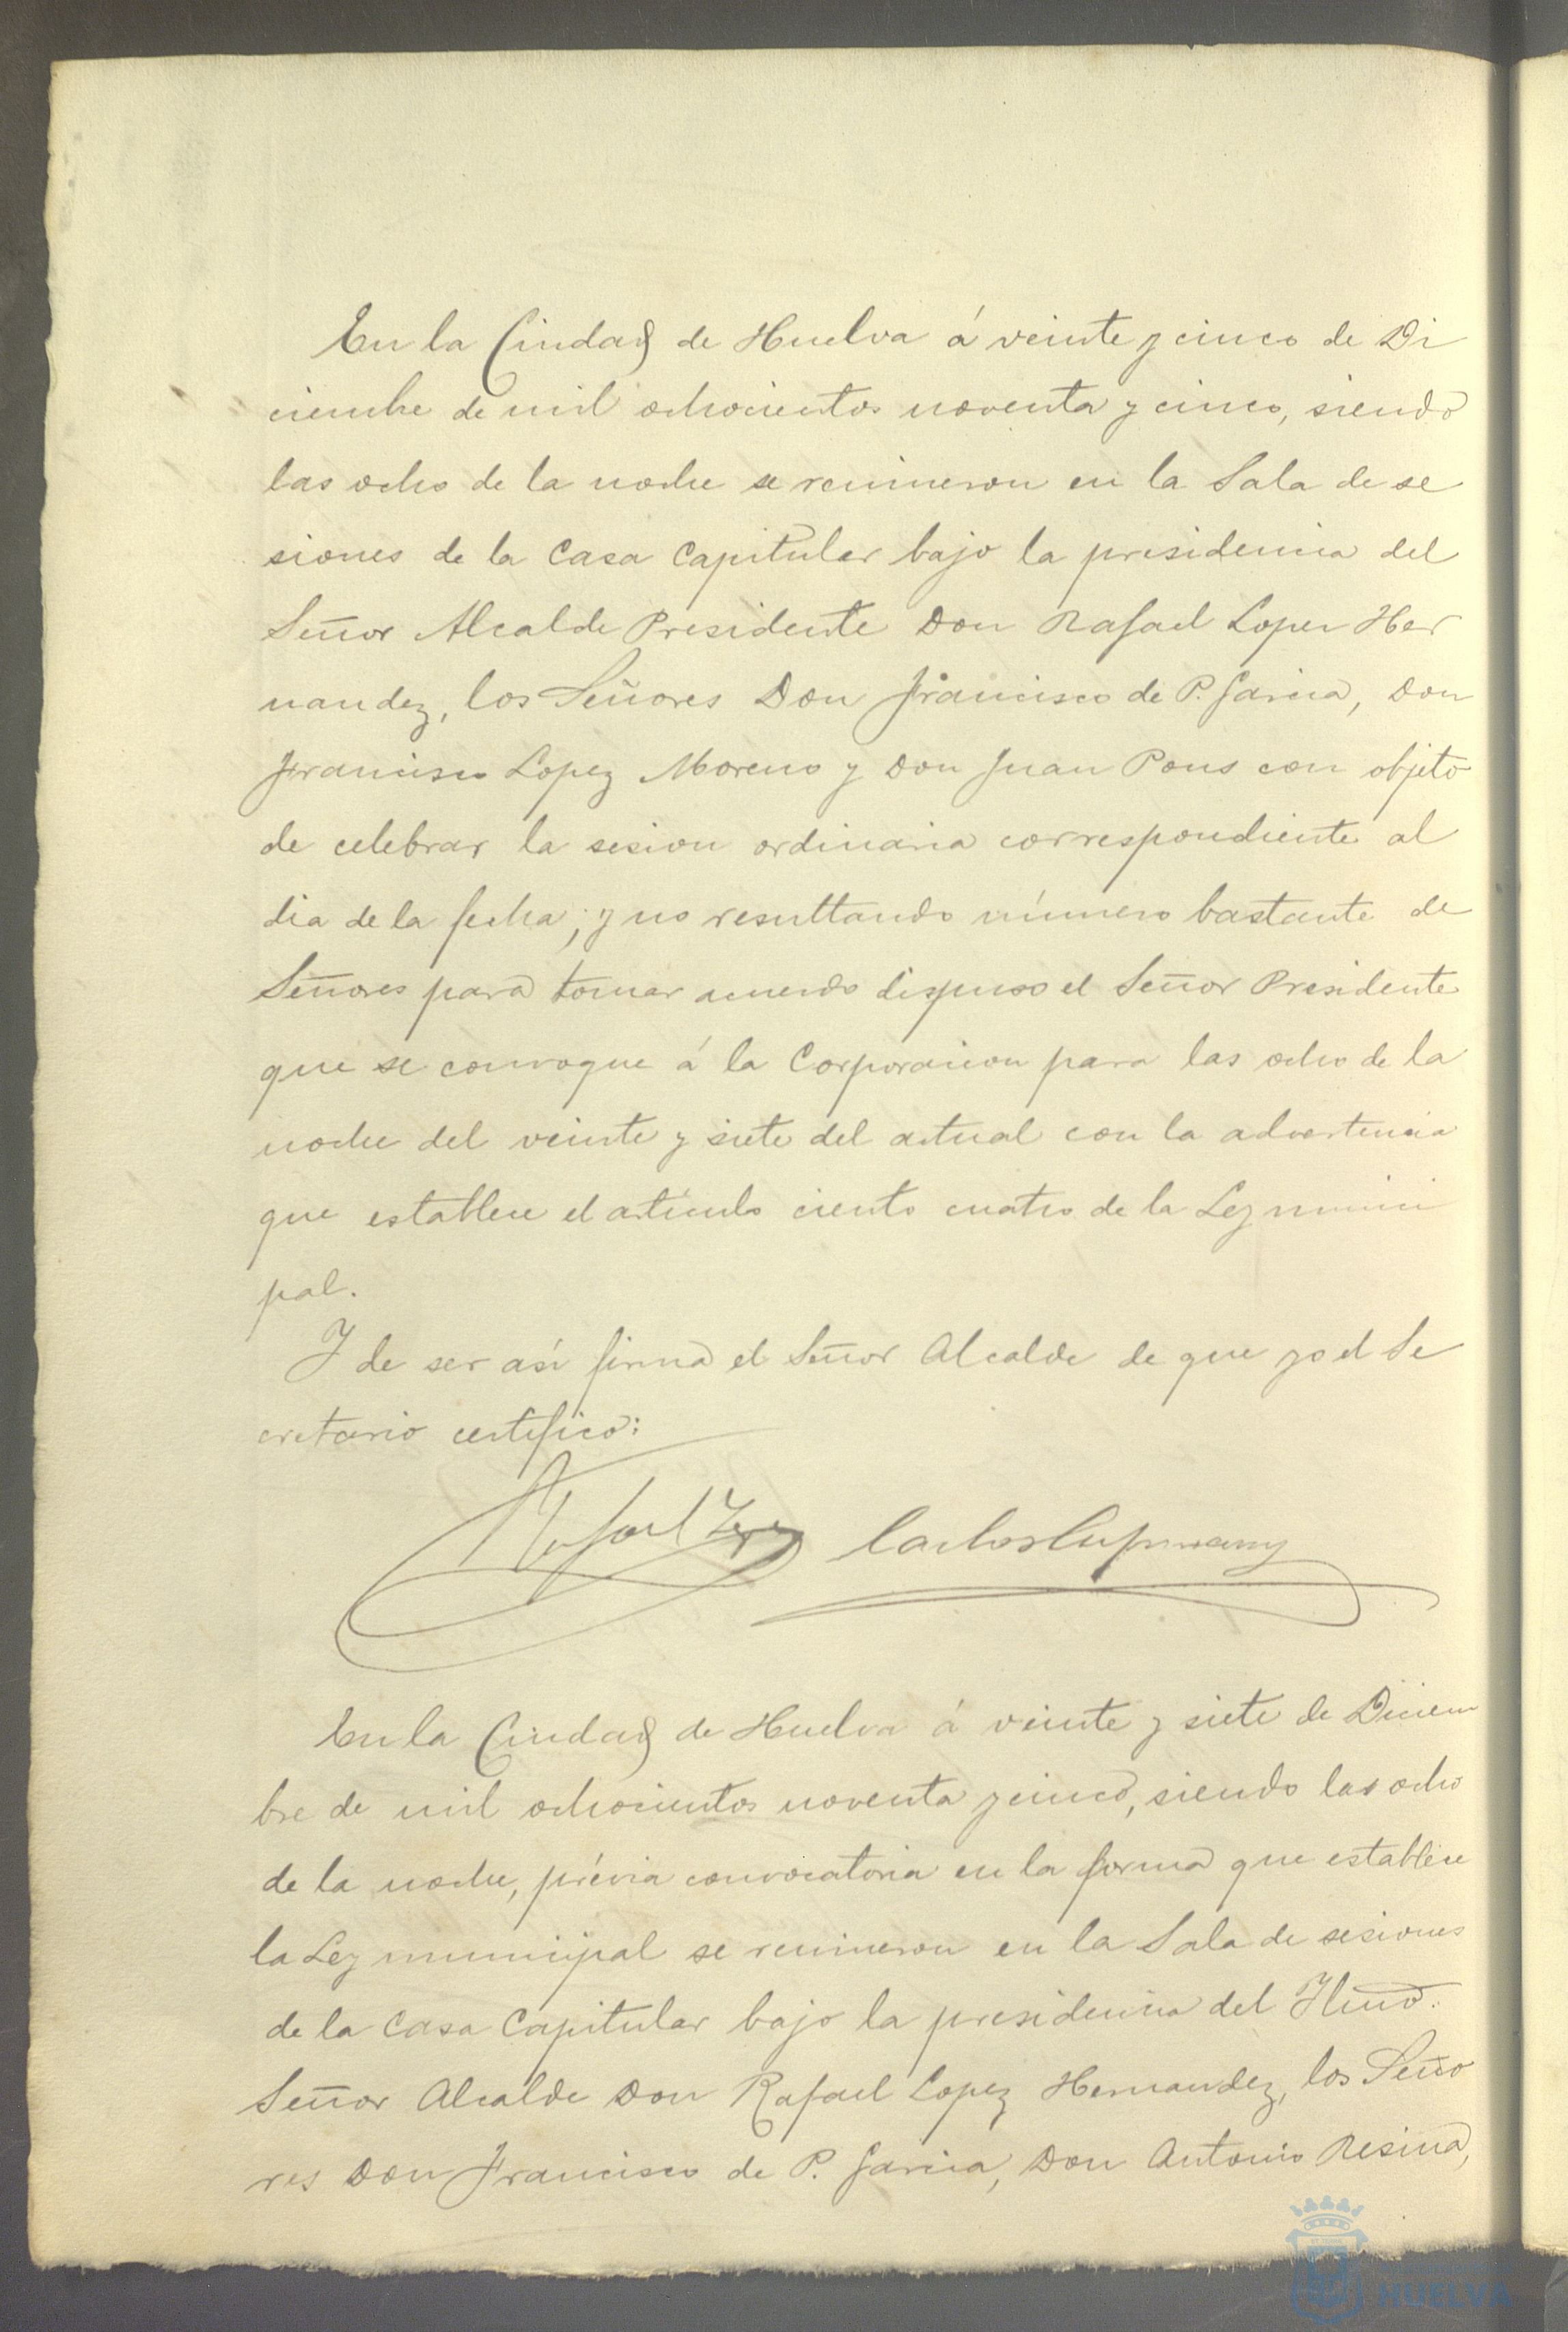 En la Ciudad de Huelva á veinte y cinco de Di
ciembre de mil ochocientos noventa y cinco, siendo
las ocho de la noche se reunieron en la Sala de se
siones de la Casa Capitular bajo la presidencia del
Señor Alcalde Presidente Don Rafael Lopez Her
nandez, los Señores Don Francisco de P. Garcia, Don
Francisco Lopez Moreno y Don Juan Pons con objeto
de celebrar la sesion ordinaria correspondiente al
dia de la fecha; y no resultando número bastante de
Señores para tomar acuerdo dispuso el Señor Presidente
que se convoque á la Corporacion para las ocho de la
noche del veinte y siete del actual con la advertencia
que establece el artículo ciento cuatro de la Ley munici
pal.
Y de ser así firma el Señor Alcalde de que yo el Se
cretario certifico:
Rafael Lopez Carlos
En la Ciudad de Huelva á veinte y siete de Diciem
bre de mil ochocientos noventa y cinco, siendo las ocho
de la noche, prévia convocatoria en la forma que establece
la Ley municipal se reunieron en la Sala de sesiones
de la Casa Capitular bajo la presidencia del Yltmo.
Señor Alcalde Don Rafael Lopez Hernandez, los Seño
res Don Francisco de P. Garcia, Don Antonio Resina,
HUELVA